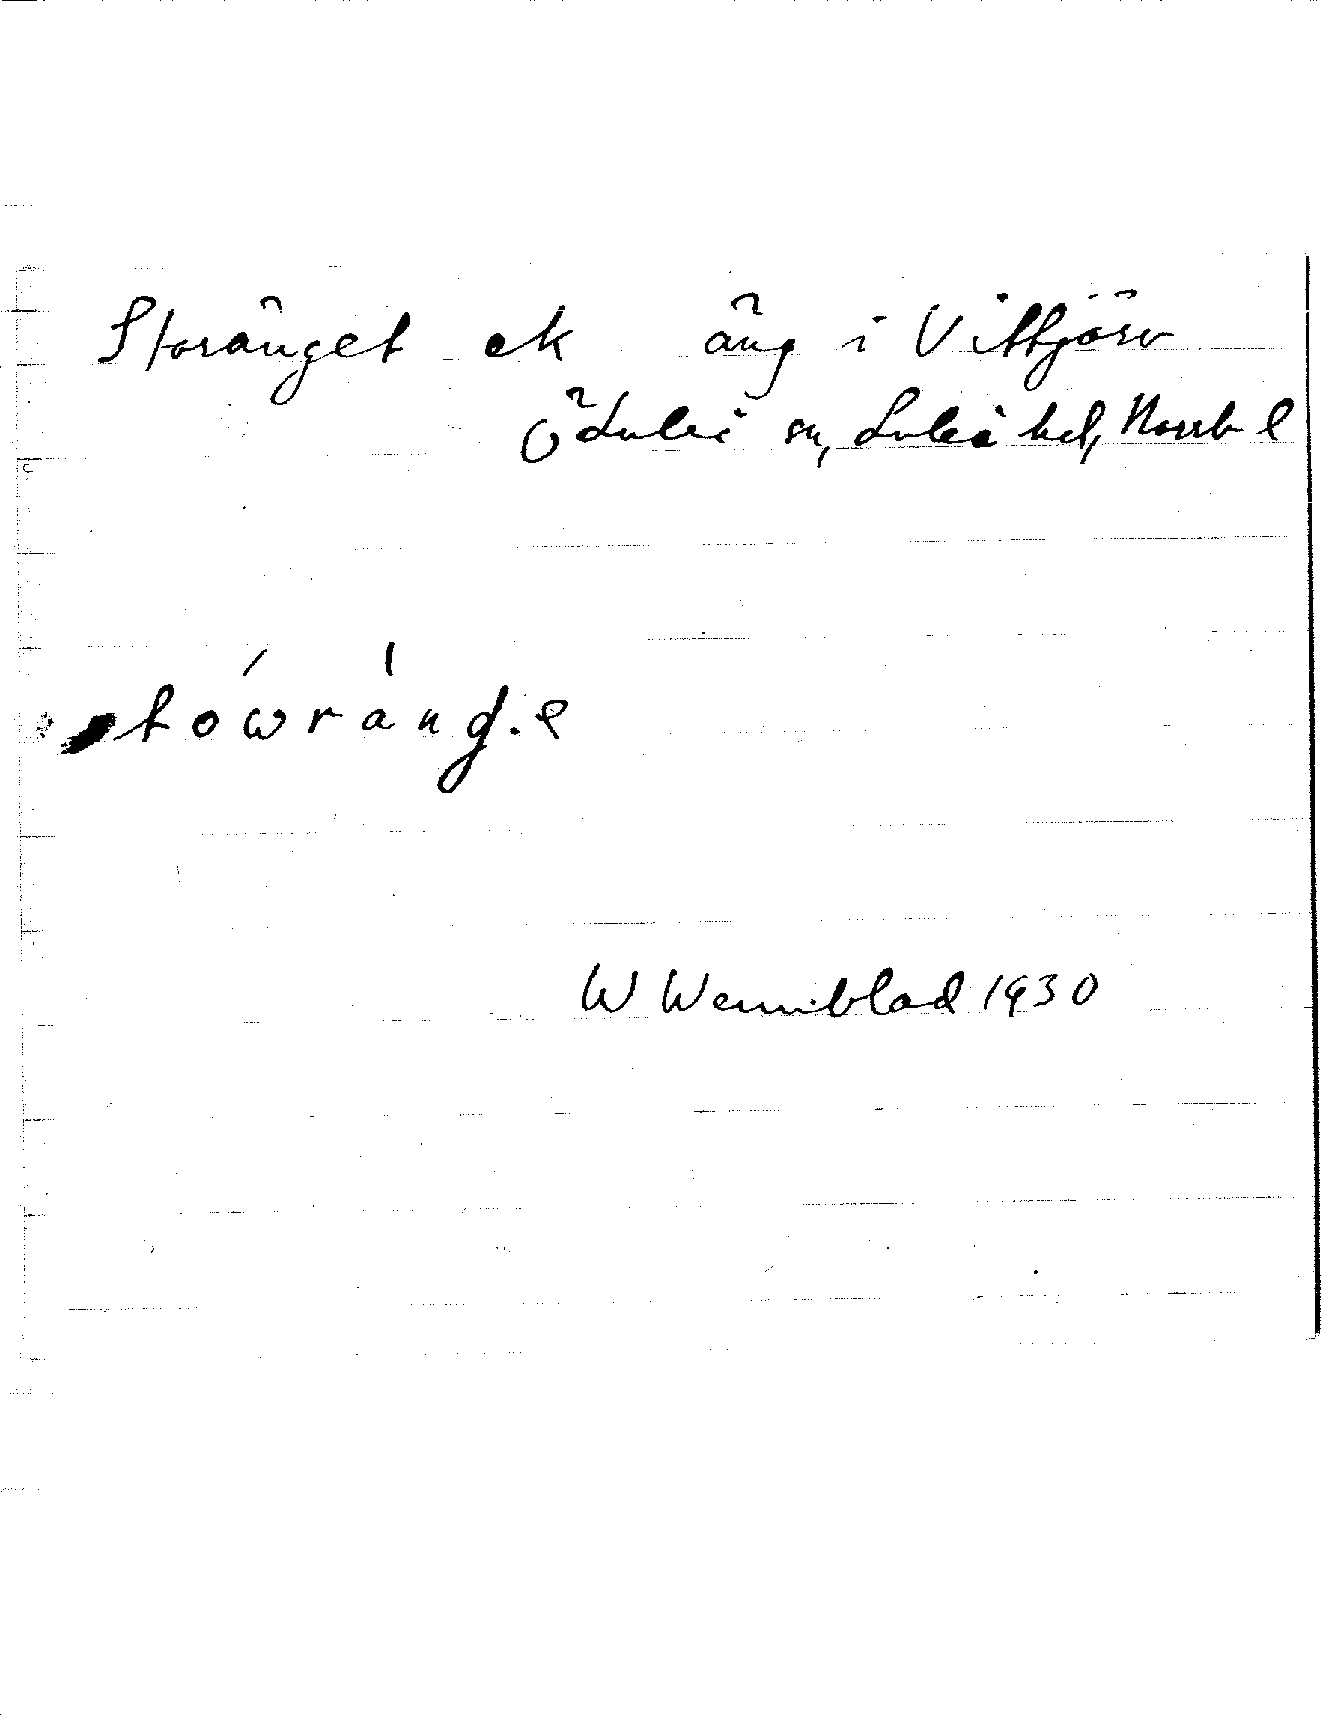 Storänget ek äng i Vittjärv
Ö Luleå sn, Luleå hd, Norrb l
stówránd.e
W Wenniblad 1930